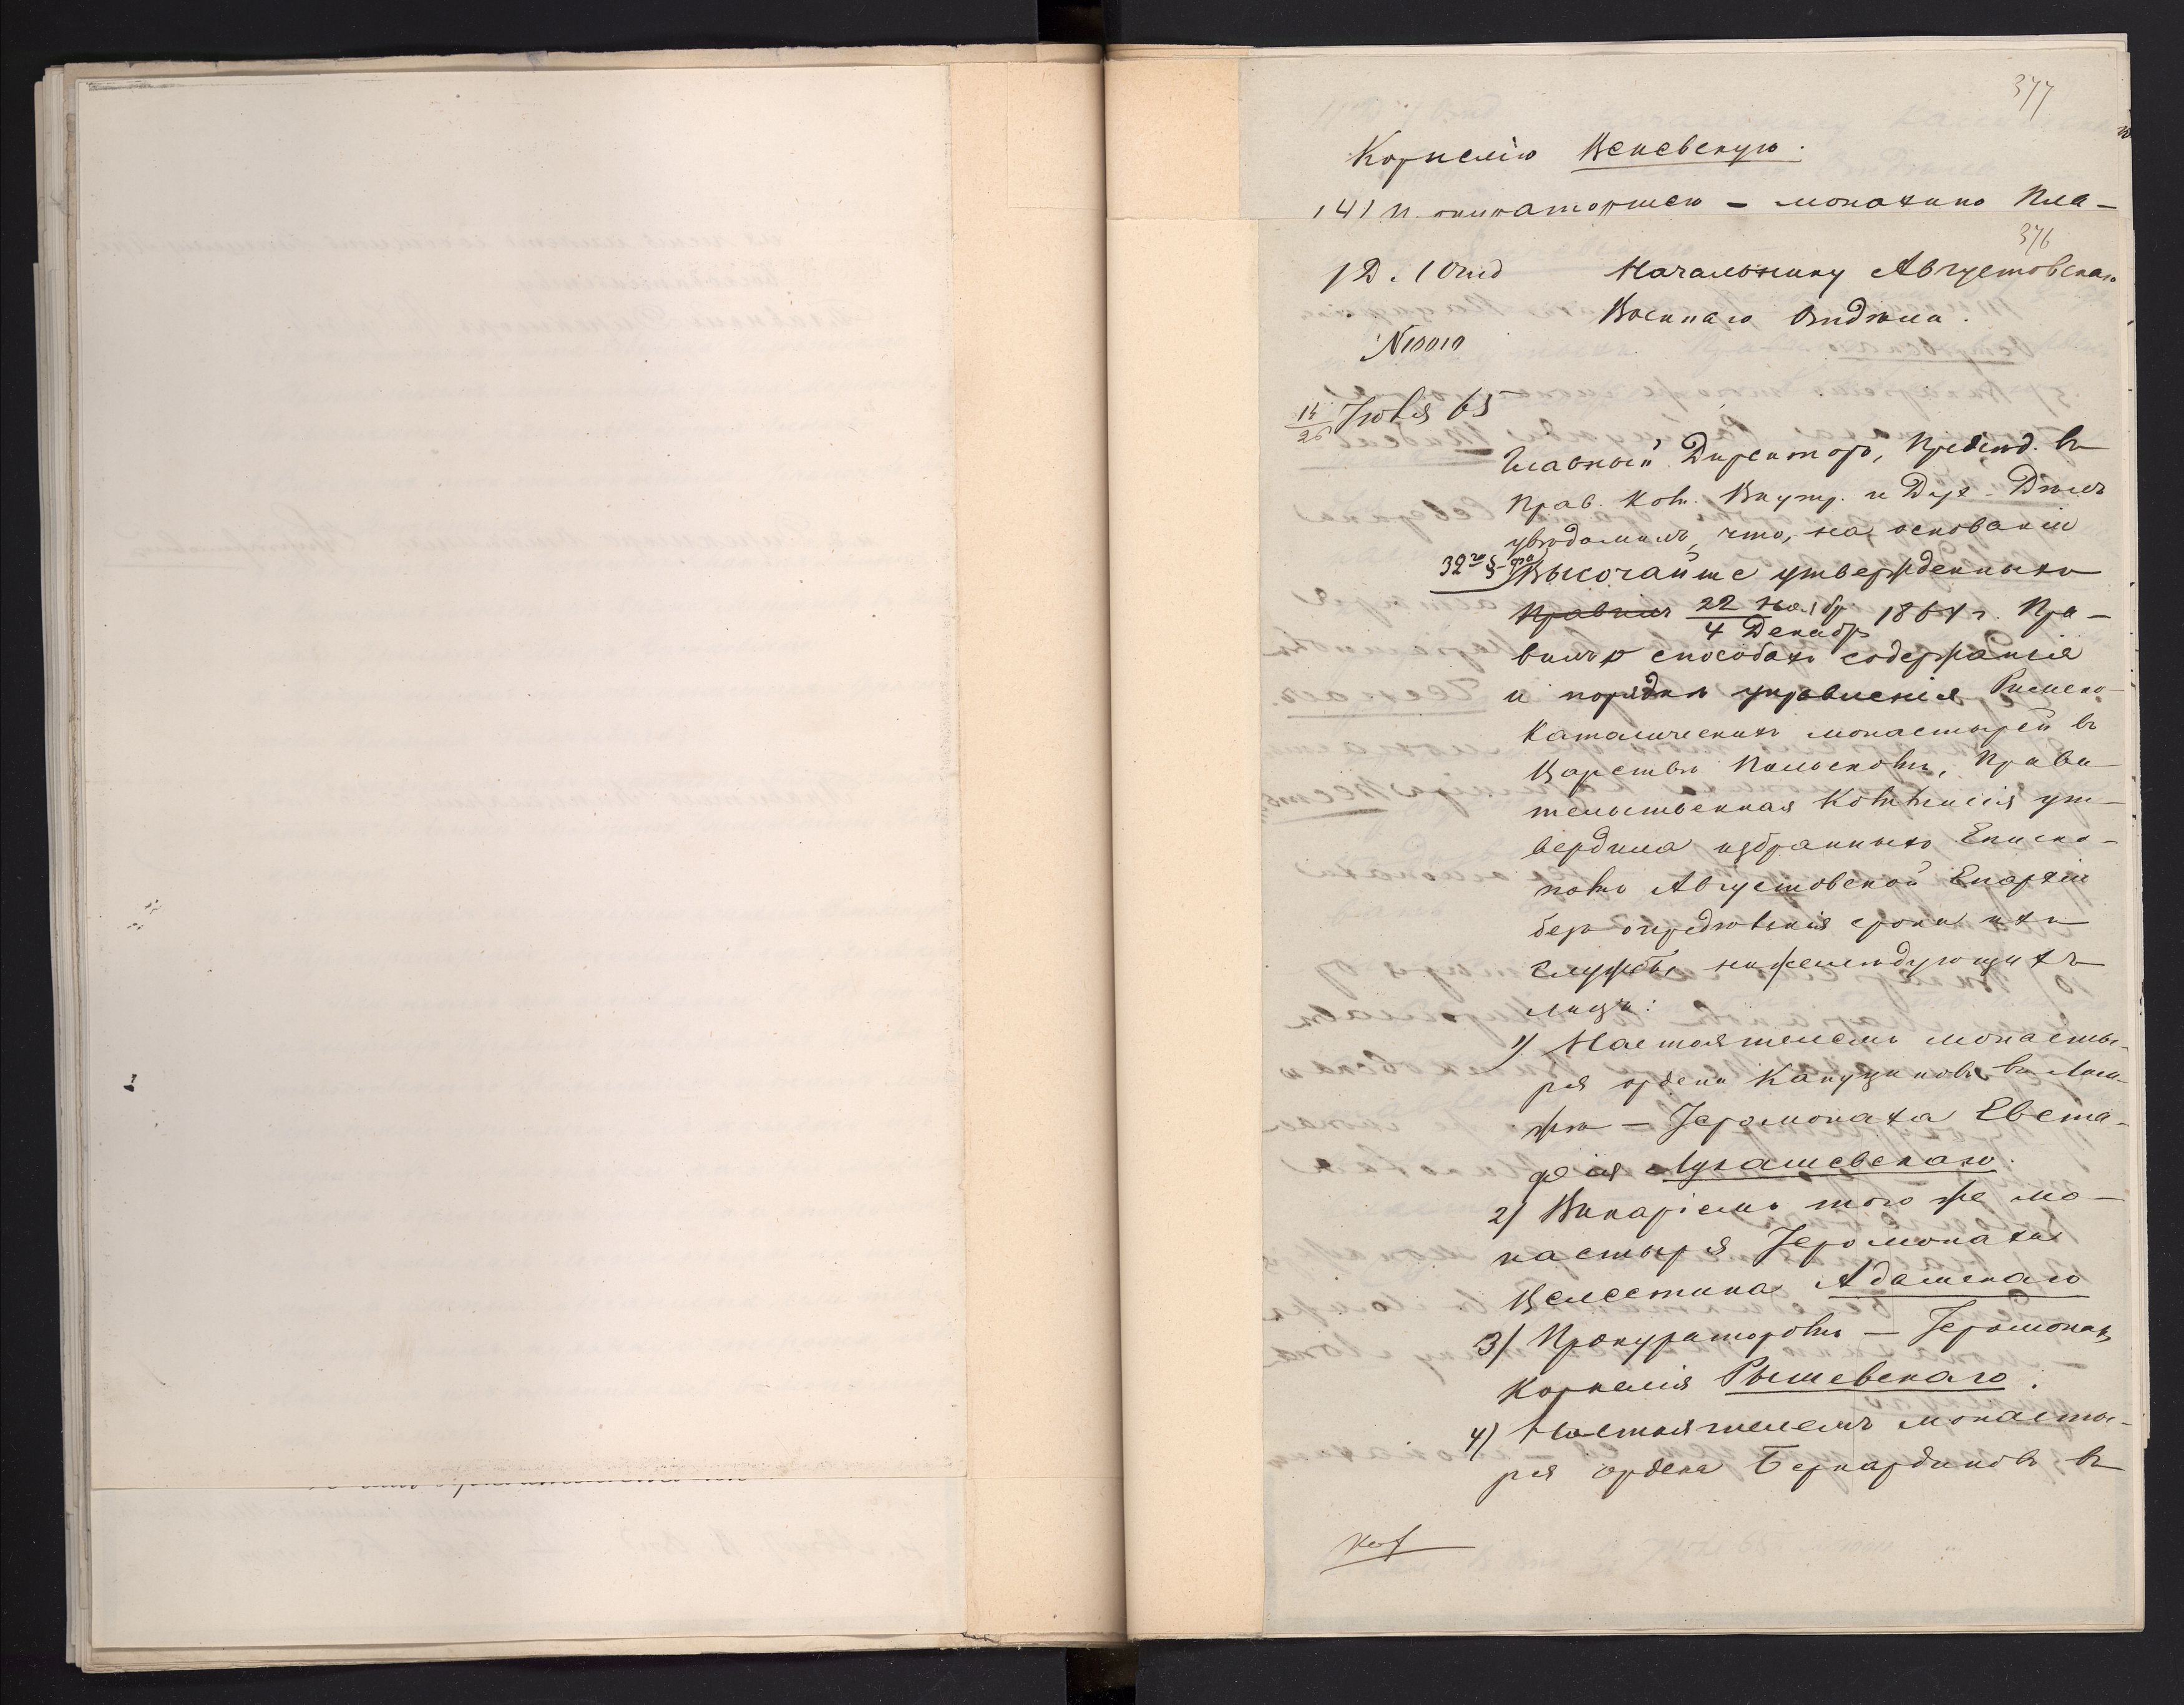 377
Корнелію Венсвскую.
14) п. – монахиню Пла-
376
1 Д. 1 Отд Начальнику Августовскаго
Военнаго Отдѣла.
№ 10010
14/26 Іюля 65
Главный Директоръ, Предсѣд. въ
Прав. Ком. Внутр. и Дух. Дѣлъ
увѣдомилъ, что, на основаніи
32го §-фа Высочайше утвержденныхъ
Правилъ 22 Ноябр/4 Декабр 1864 г. Пра-
вилъ о способахъ содержанія
и порядкѣ управленія Римско-
Католическихъ монастырей въ
Царствѣ Польскомъ, Прави-
тельственная Коммисія ут-
вердила избранныхъ Еписко-
помъ Августовской Епархіи
безъ опредѣленія срока ихъ
службы нижеслѣдующихъ
лицъ:
1) Настоятелемъ монасты-
ря ордена Капуциновъ въ Лом-
жѣ – Іеромонаха Евста-
фія Лукашевскаго.
2) Викаріемъ того же мо-
настыря Іеромонаха
Целестина Адамскаго
3) Прокураторомъ – Іеромонах.
Корнелія Рышевскаго.
4) Настоятелемъ монасты-
ря ордена Бернардиновъ въ